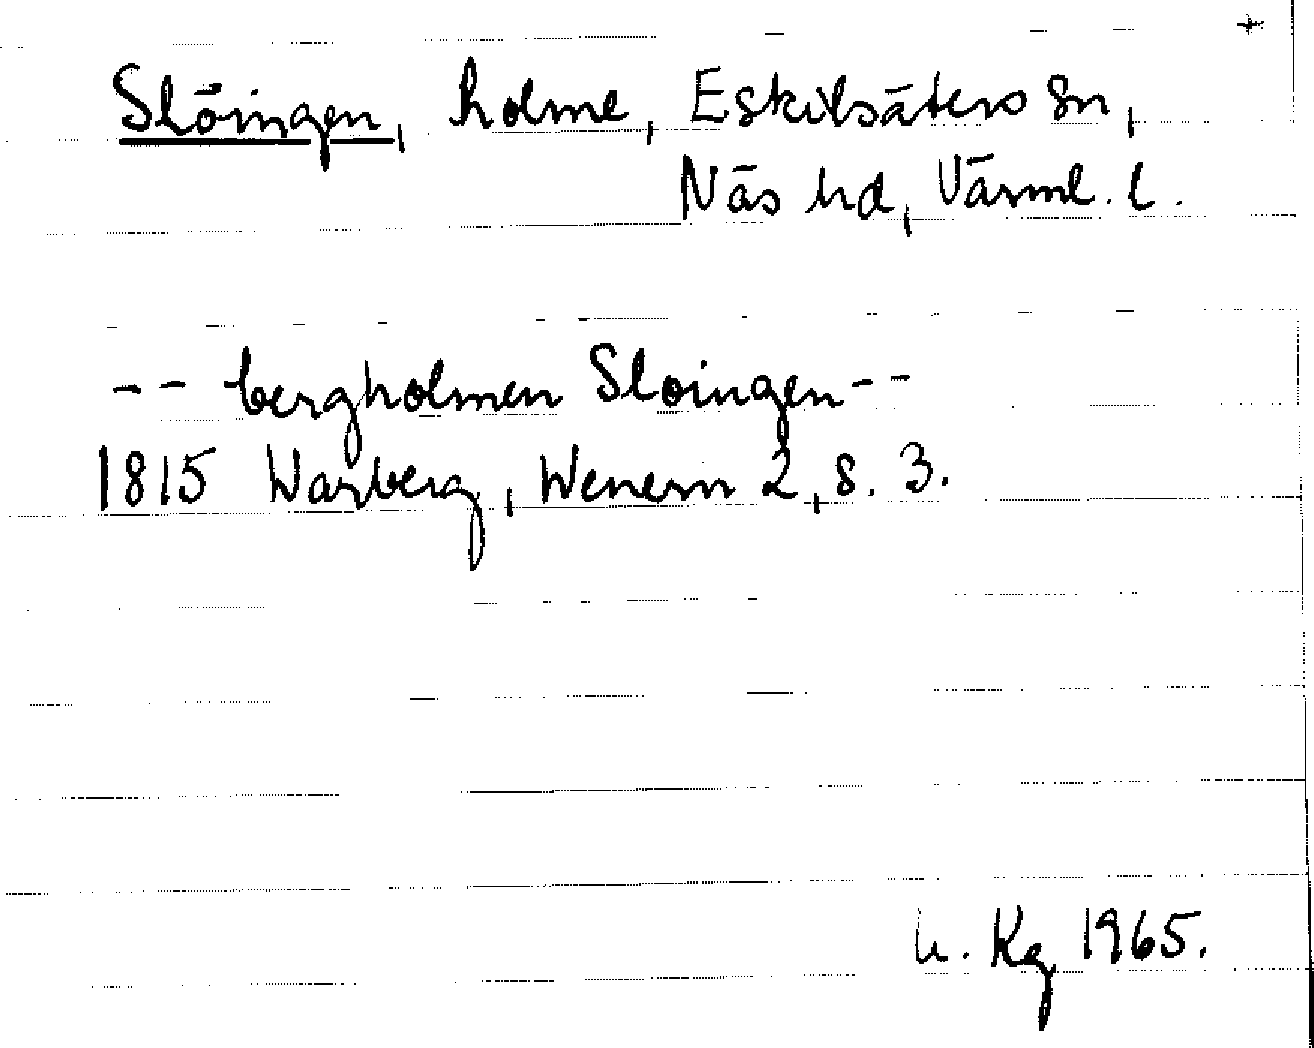 +
Slöingen, holme, Eskilsäters sn,
Näs hd, Värml. l.
-- bergholmen Sloingen--
1815 Warberg, Wenern 2, s. 3.
L. Kg 1965.